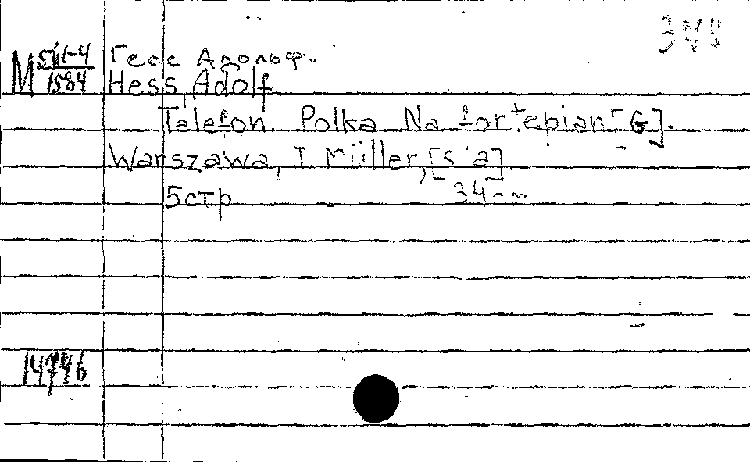 344
М 541-4/1584 Гесс Адольф.
Hess, Adolf
Telefon. Polka Na fortepian [G].
Warszawa, I Müller, [s a]
34
5стр
14776